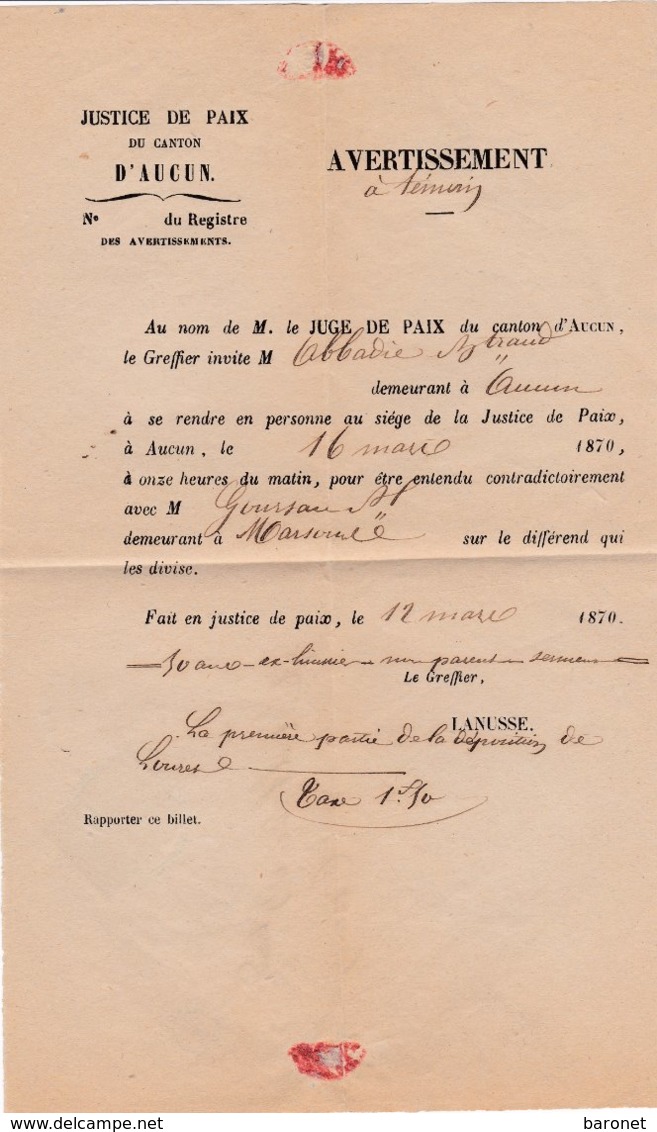 JUSTICE DE PAIX
DU CANTON
D'AUCUN.
N° du Registre
DES AVERTISSEMENTS.
AVERTISSEMENT
à témoin
Au nom de M. le JUGE DE PAIX du canton d'AUCUN,
le Greffier invite M Abbadie
demeurant à Aucun
à se rendre en personne au siége de la Justice de Paix,
à Aucun, le 16 mars 1870,
à onze heures du matin, pour être entendu contradictoirement
avec M
demeurant à sur le différend qui
les divise.
Fait en justice de paix, le 12 mars 1870.
50 ans - ex-huissier - non parent - serment
Le Greffier,
LANUSSE.
La première partie de la déposition de
Taxe 1f 50
Rapporter ce billet.
baronet